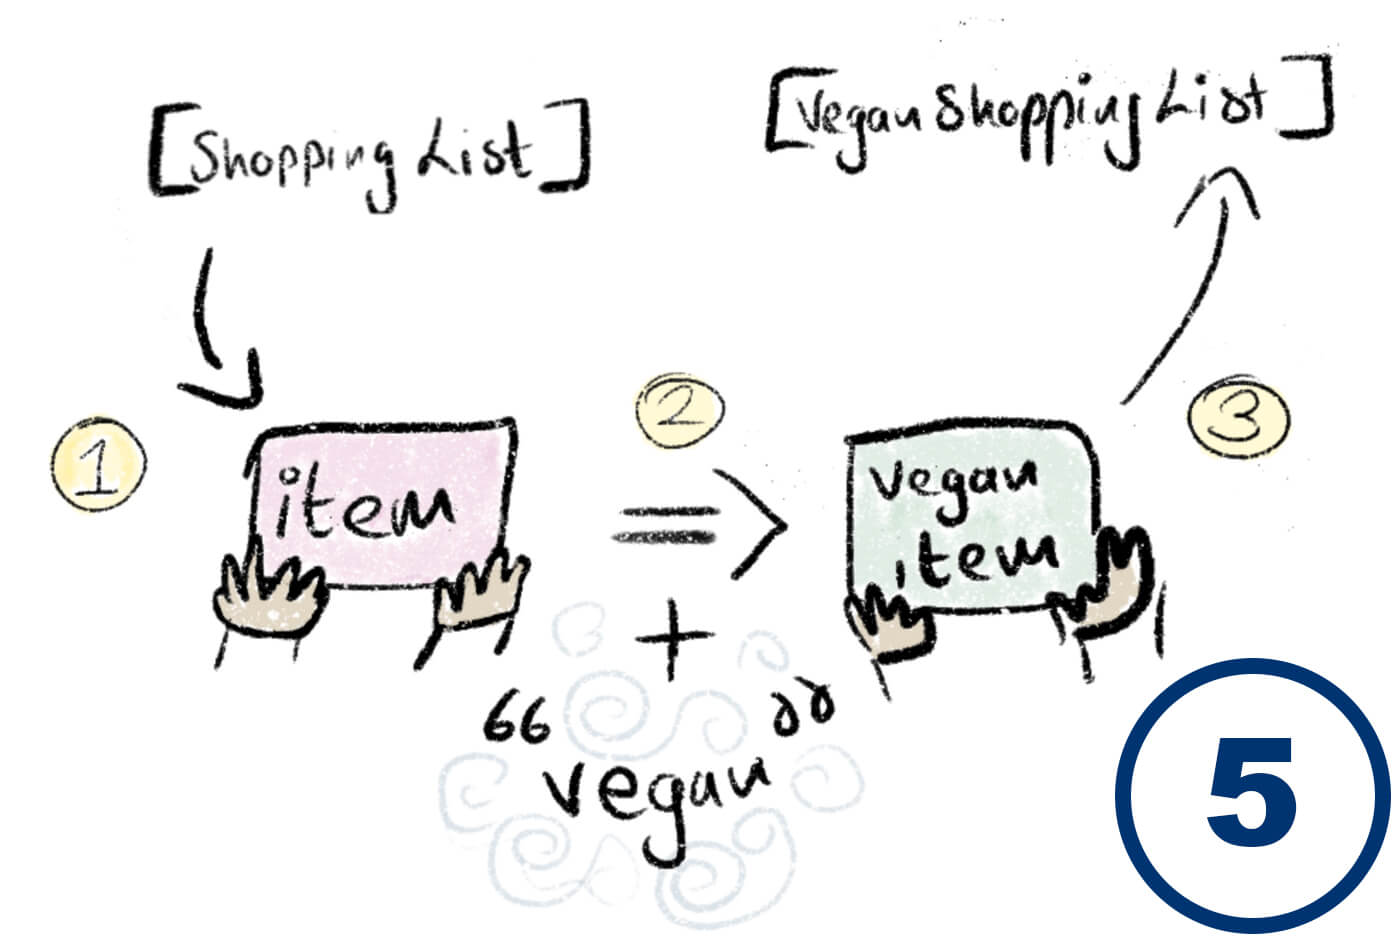 [Shopping List]
[vegan Shopping List]
1
item
2
=>
vegan
item
3
+
“vegan”
5